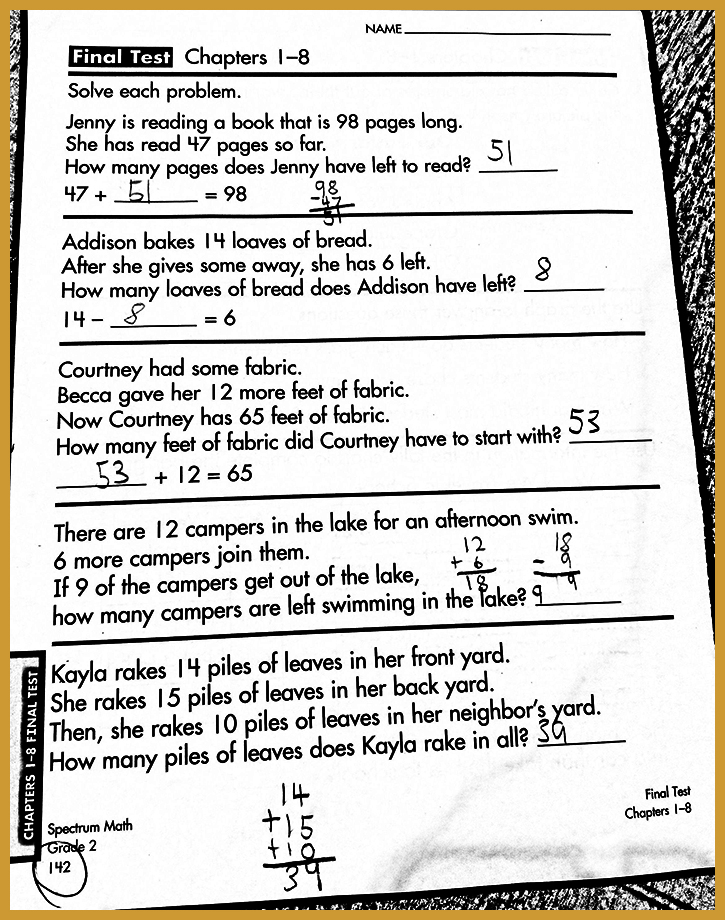 NAME
Final Test Chapters 1–8
Solve each problem.
Jenny is reading a book that is 98 pages long.
She has read 47 pages so far.
How many pages does Jenny have left to read? 51
47 + 51 = 98
98
-47
51
Addison bakes 14 loaves of bread.
After she gives some away, she has 6 left.
How many loaves of bread does Addison have left? 8
14 – 8 = 6
Courtney had some fabric.
Becca gave her 12 more feet of fabric.
Now Courtney has 65 feet of fabric.
How many feet of fabric did Courtney have to start with? 53
53 + 12 = 65
There are 12 campers in the lake for an afternoon swim.
6 more campers join them.
If 9 of the campers get out of the lake,
how many campers are left swimming in the lake? 9
12
+ 6
18
18
- 9
9
Kayla rakes 14 piles of leaves in her front yard.
She rakes 15 piles of leaves in her back yard.
Then, she rakes 10 piles of leaves in her neighbor's yard.
How many piles of leaves does Kayla rake in all? 39
14
+15
+10
39
CHAPTERS 1–8 FINAL TEST
Spectrum Math
Grade 2
142
Final Test
Chapters 1–8